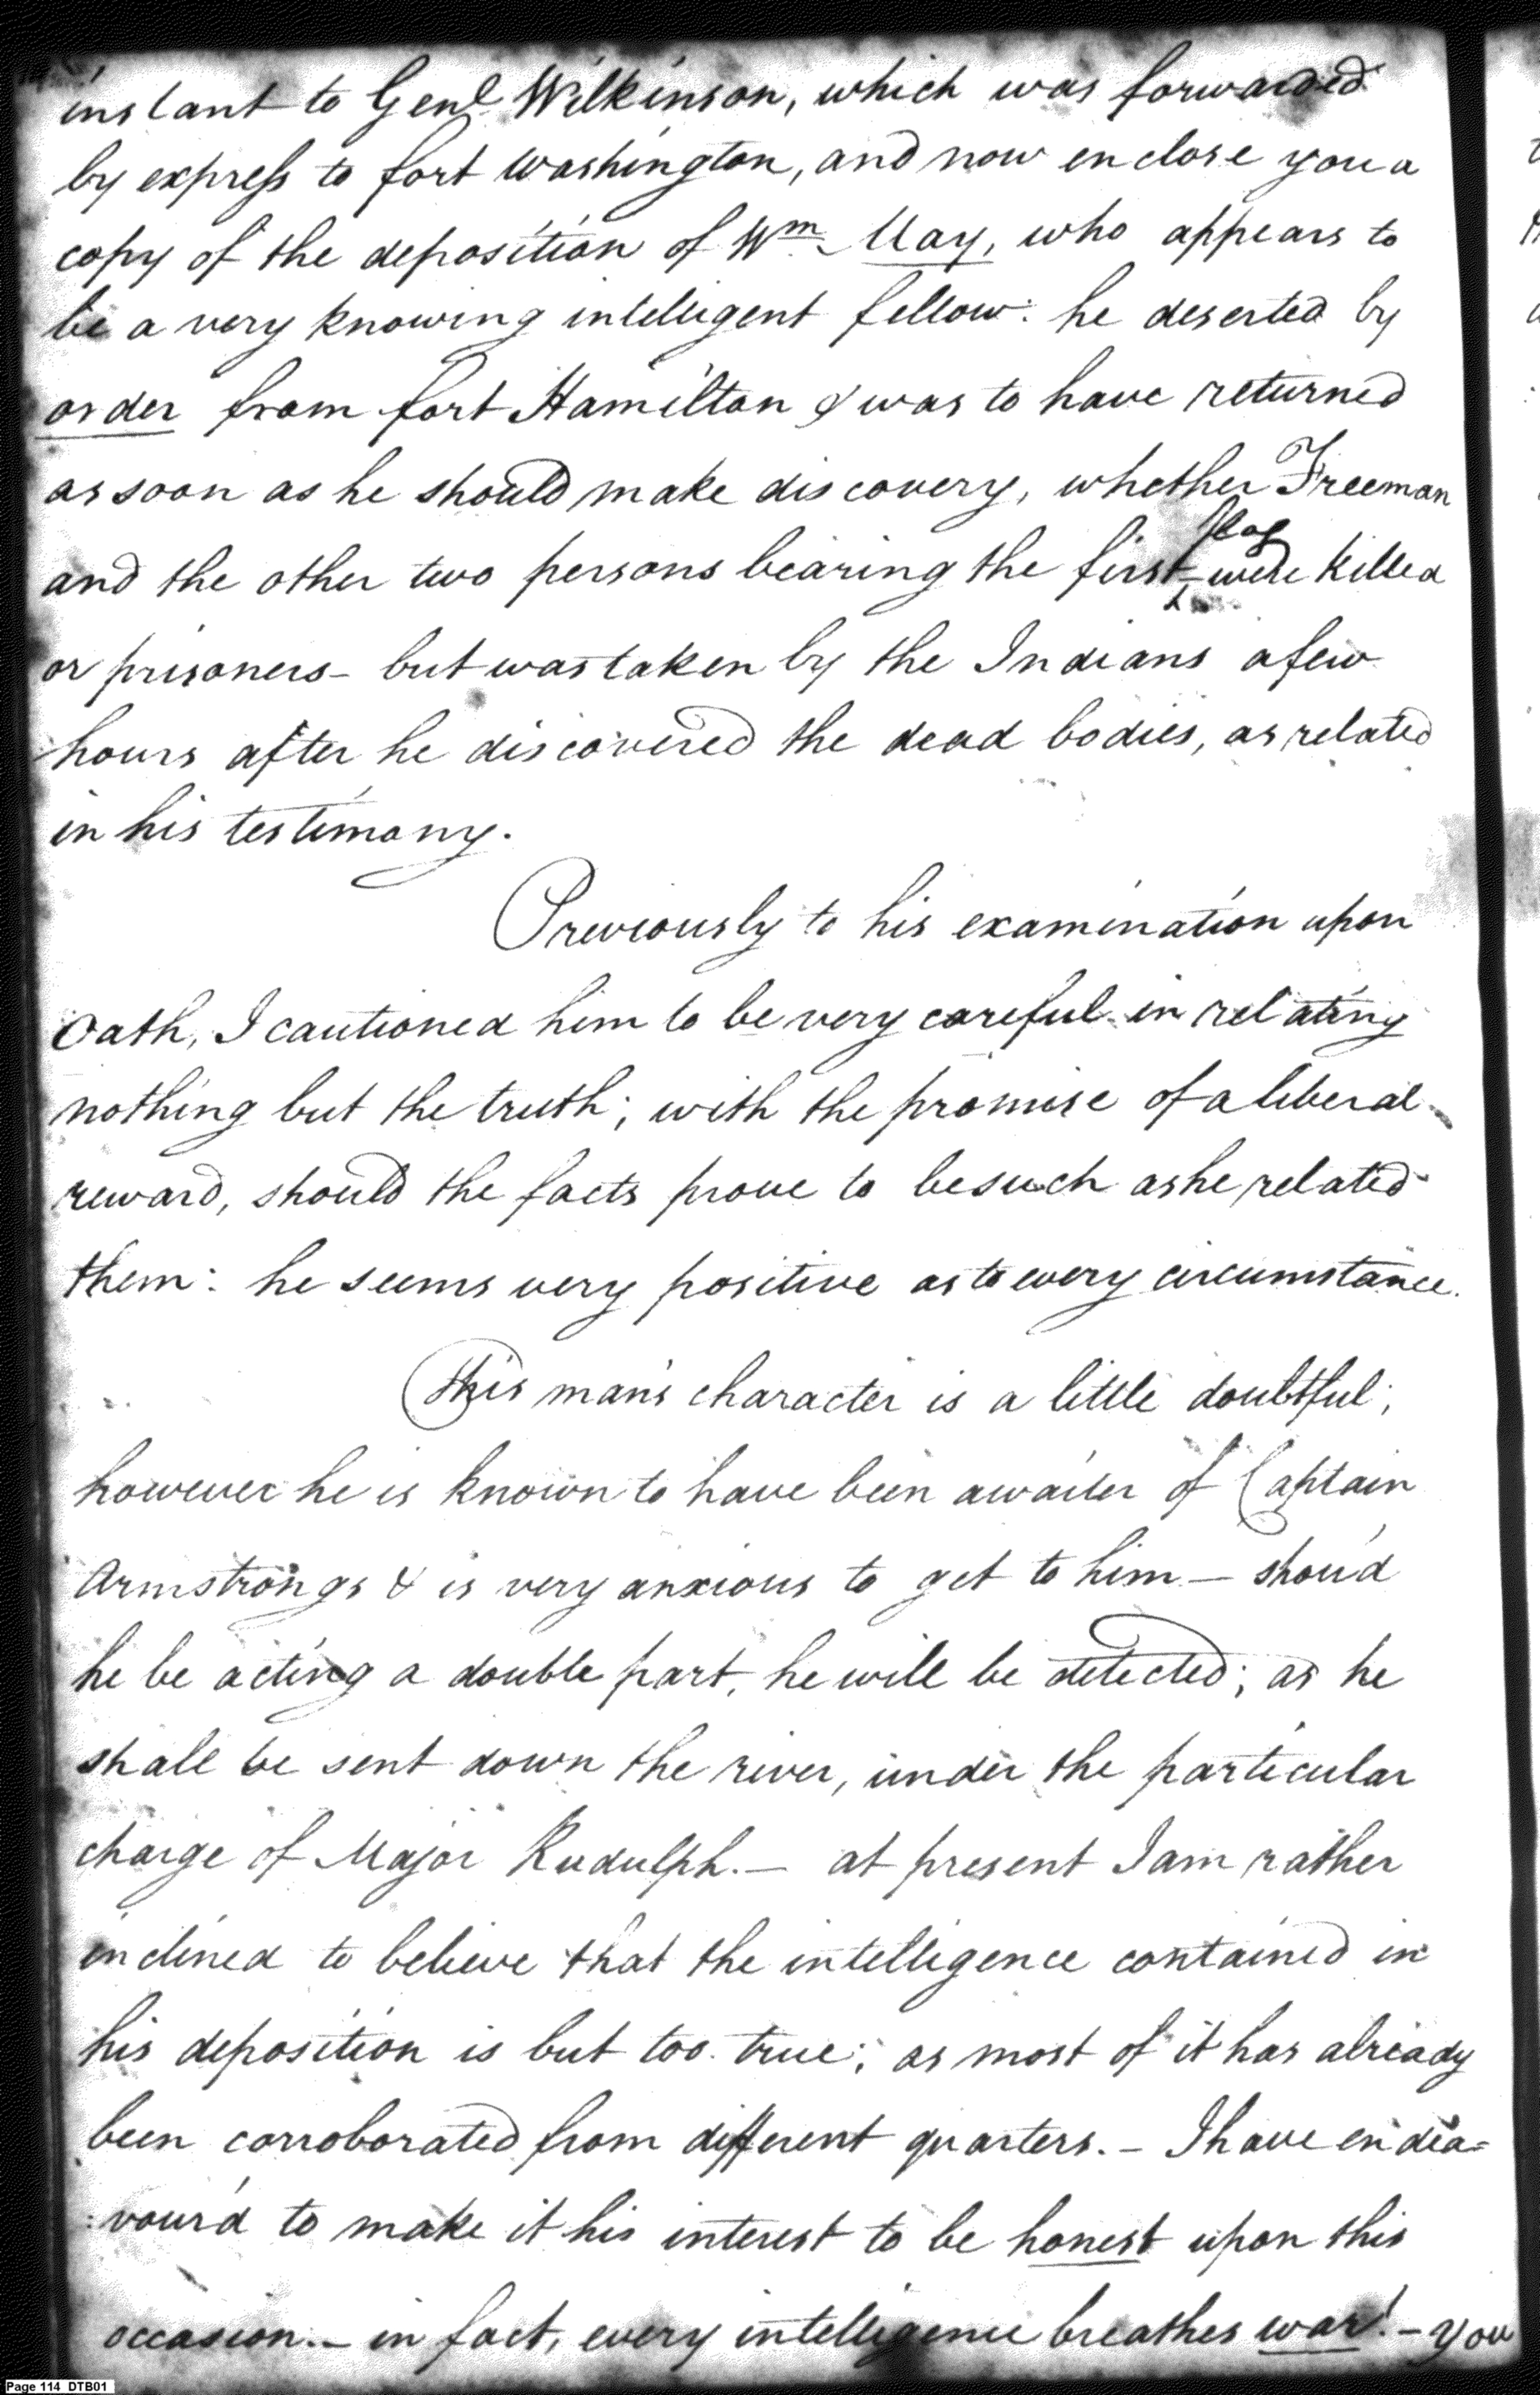 instant to Genl Wilkinson, which was forwarded
by express to fort Washington, and now enclose you a
copy of the deposition of Wm. May, who appears to
be a very knowing intelligent fellow: he deserted by
order from fort Hamilton & was to have returned
as soon as he should make discovery, whether Freeman
flag
and the other two persons bearing the first were killed
or prisoners - but was taken by the Indians a few
hours after he discovered the dead bodies, as related
in his testimony.
Previously to his examination upon
Oath, I cautioned him to be very careful in relating
nothing but the truth; with the promise of a liberal
reward, should the facts prove to be such as he related
them: he seems very positive as to every circumstance.
This man's character is a little doubtful;
however he is known to have been a waiter of Captain
Armstrongs & is very anxious to get to him — shou'd
he be acting a double part, he will be detected; as he
shall be sent down the river, under the particular
charge of Major Rudulph. — at present I am rather
inclined to believe that the intelligence contained in
his deposition is but too true; as most of it has already
been corroborated from different quarters. - I have endea=
:vour'd to make it his interest to be honest upon this
occasion. - in fact, every intelligence breathes war! - you
Page 114 DTB01